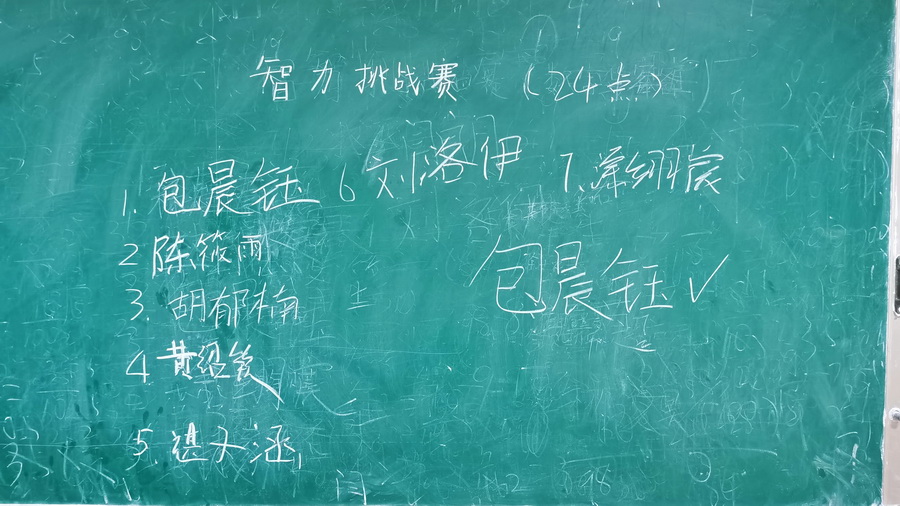 智力挑战赛 (24点)
1. 包晨钰 6 刘洛伊 7.
2 陈筱雨
3. 胡郁楠
4 黄绍
5. 谌又涵
包晨钰✓